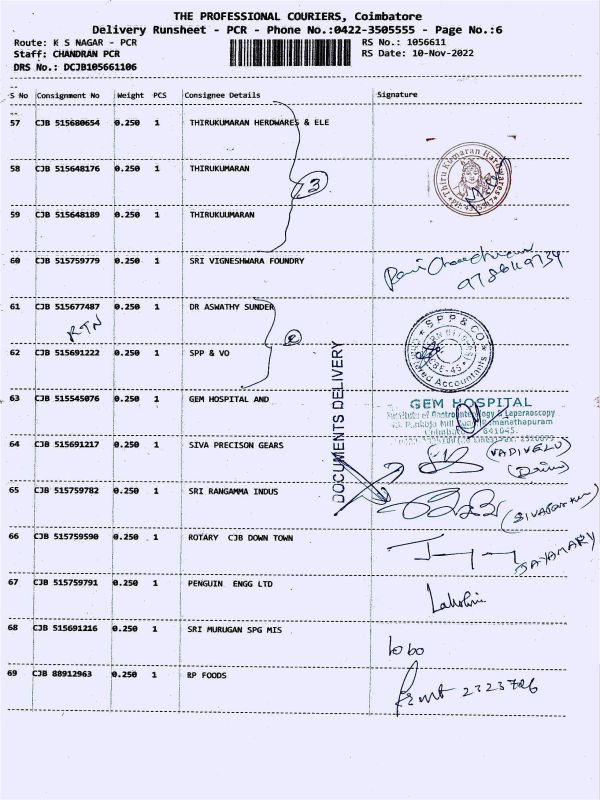 THE PROFESSIONAL COURIERS, Coimbatore
Delivery Runsheet - PCR - Phone No.:0422-3505555 - Page No.:6
Route: K S NAGAR - PCR RS No.: 1056611
Staff: CHANDRAN PCR RS Date: 10-Nov-2022
DRS No.: DCJB105661106
S No Consignment No Weight PCS Consignee Details Signature
57 CJB 515680654 0.250 1 THIRUKUMARAN HERDWARES & ELE
58 CJB 515648176 0.250 1 THIRUKUMARAN
3
Thiru Kumaran Hardwares
59 CJB 515648189 0.250 1 THIRUKUUMARAN
60 CJB 515759779 0.250 1 SRI VIGNESHWARA FOUNDRY
61 CJB 515677487 0.250 1 DR ASWATHY SUNDER
RTN
SPP & CO
Chartered Accountants
62 CJB 515691222 0.250 1 SPP & VO
DOCUMENTS DELIVERY
63 CJB 515545076 0.250 1 GEM HOSPITAL AND
GEM HOSPITAL
Institute of Gastroenterology & Laparoscopy
Ramanathapuram
641045.
64 CJB 515691217 0.250 1 SIVA PRECISON GEARS
(VADIVELU)
65 CJB 515759782 0.250 1 SRI RANGAMMA INDUS
66 CJB 515759590 0.250 1 ROTARY CJB DOWN TOWN
JAYAMARY
67 CJB 515759791 0.250 1 PENGUIN ENGG LTD
68 CJB 515691216 0.250 1 SRI MURUGAN SPG MIS
69 CJB 88912963 0.250 1 RP FOODS